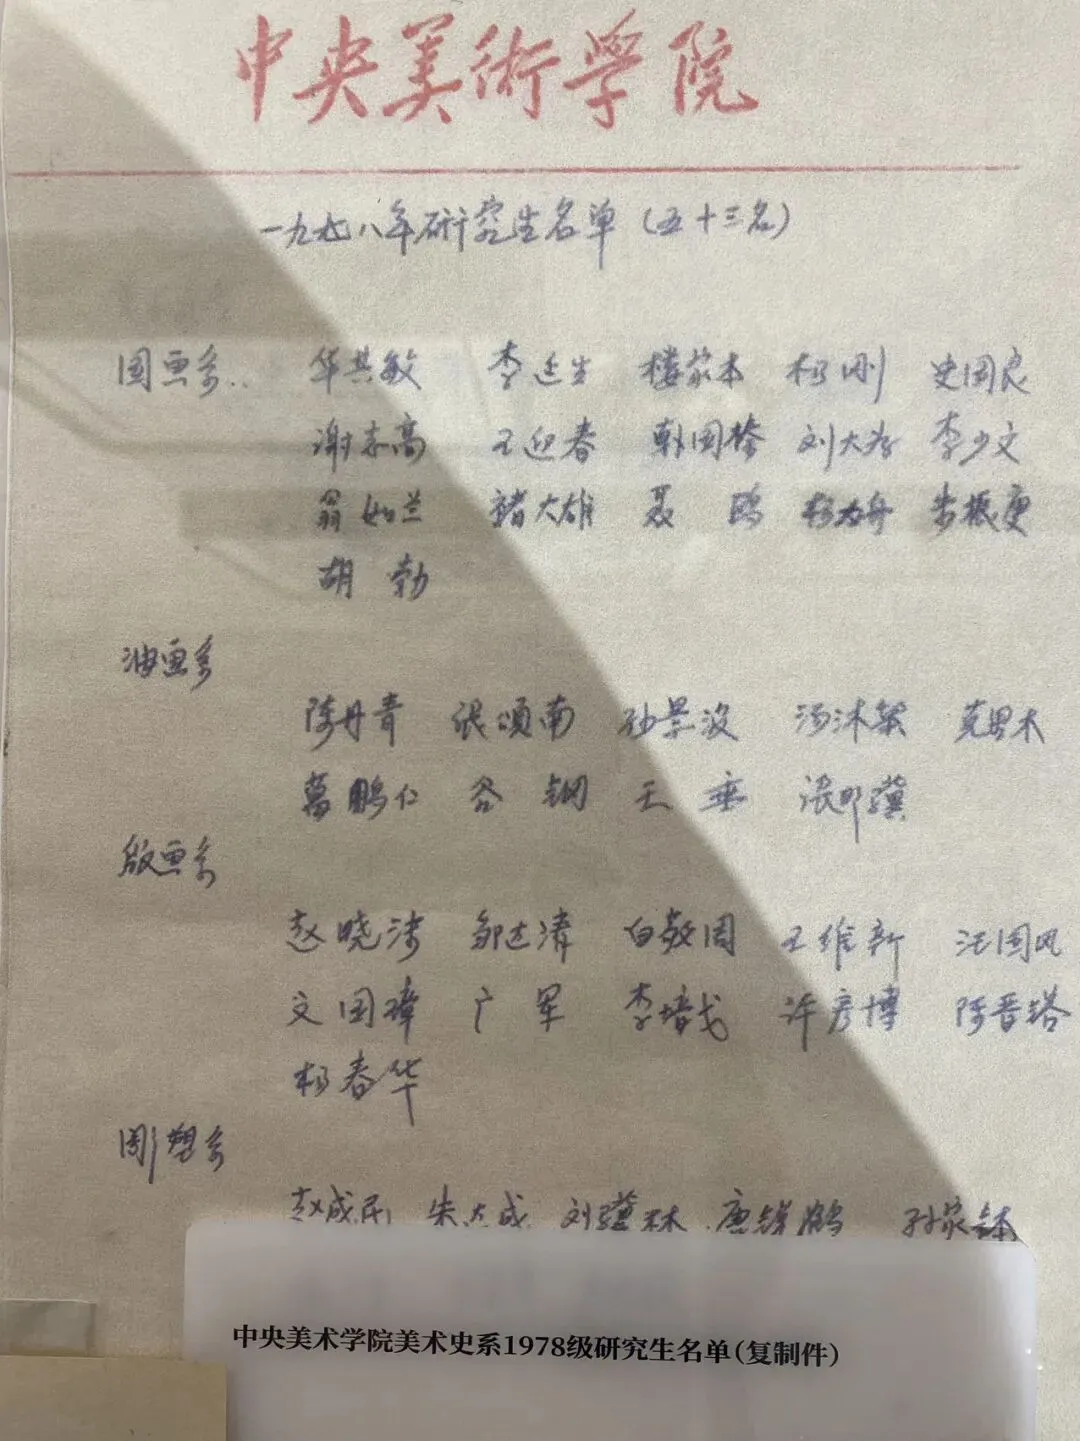 中央美術学院
一九七八年研究生名单（五十三名）
国画系.. 华其敏 李延生 楼家本 杨刚 史国良
谢志高 王迎春 韩国榛 刘大为 李少文
翁如兰 褚大雄 聂鸥 杨力舟 朱振庚
胡勃
油画系
陈丹青 张颂南 孙景波 汤沐黎 克里木
葛鹏仁 谷钢 王垂 张郎骥
版画系
赵晓沫 邹达清 白敬周 王维新 汪国风
文国璋 广军 李培戈 许彦博 陈晋镕
杨春华
雕塑系
赵成民 朱大成 刘骥林 唐锐鹤 孙家钵
中央美术学院美术史系1978级研究生名单（复制件）